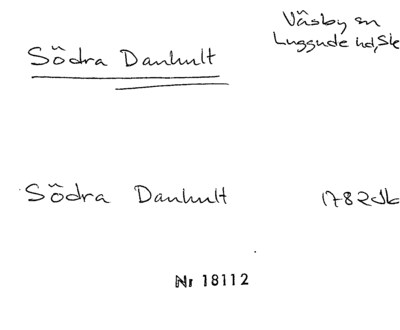 Väsby sn
Luggude hd, Sk
Södra Danhult
Södra Danhult 1782 Jb
Nr 18112